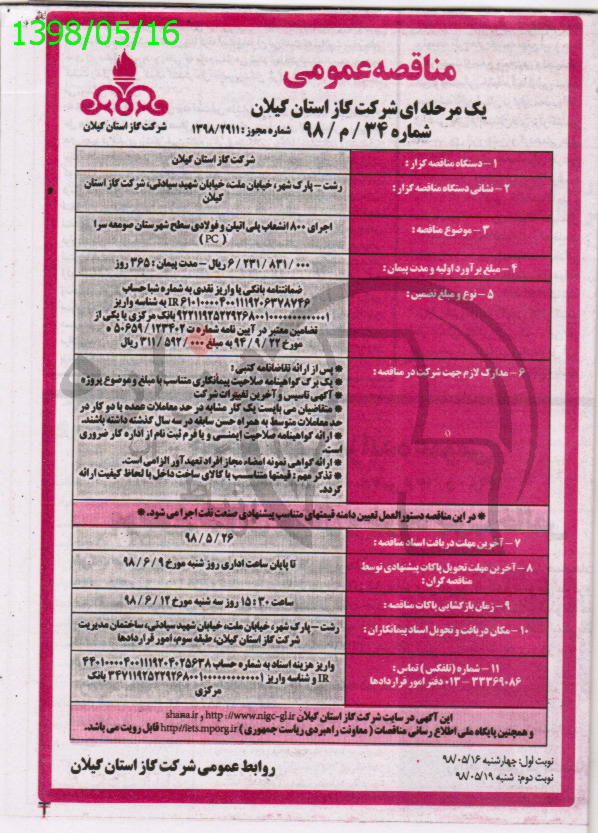 1398/05/16
مناقصه عمومی
یک مرحله ای شرکت گاز استان گیلان
شماره ۳۴ / م / ۹۸
شماره مجوز : ۱۳۹۸/۲۹۱۱
شرکت گاز استان گیلان
۱ – دستگاه مناقصه گزار :
شرکت گاز استان گیلان
۲ – نشانی دستگاه مناقصه گزار :
رشت – پارک شهر، خیابان ملت، خیابان شهید سیادتی، شرکت گاز استان
گیلان
۳ – موضوع مناقصه :
اجرای ۸۰۰ انشعاب پلی اتیلن و فولادی سطح شهرستان صومعه سرا
( PC )
۴ – مبلغ برآورد اولیه و مدت پیمان :
۶ / ۲۳۱ / ۸۳۱ / ۰۰۰ ریال – مدت پیمان : ۳۶۵ روز
۵ – نوع و مبلغ تضمین :
ضمانتنامه بانکی یا واریز نقدی به شماره شبا حساب
IR ۶۱۰۱۰۰۰۰۴۰۰۱۱۱۹۲۰۶۳۷۸۷۴۶ به شناسه واریز
بانک مرکزی یا یکی از
تضامین معتبر در آیین نامه شماره ت ۱۲۳۴۰۲ / ۵۰۶۵۹ ه
مورخ ۲۲ / ۹ / ۹۴ به مبلغ ۳۱۱ / ۵۹۲ / ۰۰۰ ریال
۶ – مدارک لازم جهت شرکت در مناقصه :
* پس از ارائه تقاضانامه کتبی :
* یک برگ گواهینامه صلاحیت پیمانکاری متناسب با مبلغ و موضوع پروژه
* آگهی تاسیس و آخرین تغییرات شرکت
* متقاضیان می بایست یک کار مشابه در حد معاملات عمده یا دو کار در
حد معاملات متوسط به همراه حسن سابقه در سه سال گذشته داشته باشند.
* ارائه گواهینامه صلاحیت ایمنی و یا فرم ثبت نام از اداره کار ضروری
است.
* ارائه گواهی نمونه امضاء مجاز افراد تعهدآور الزامی است.
* تذکر مهم : قیمتها متناسب با کالای ساخت داخل با لحاظ کیفیت ارائه
گردد.
* در این مناقصه دستورالعمل تعیین دامنه قیمتهای متناسب پیشنهادی صنعت نفت اجرا می شود. *
۷ – آخرین مهلت دریافت اسناد مناقصه :
۹۸ / ۵ / ۲۶
۸ – آخرین مهلت تحویل پاکات پیشنهادی توسط
مناقصه گران :
تا پایان ساعت اداری روز شنبه مورخ ۹ / ۶ / ۹۸
۹ – زمان بازگشایی پاکات مناقصه :
ساعت ۳۰ : ۱۵ روز سه شنبه مورخ ۱۲ / ۶ / ۹۸
۱۰ – مکان دریافت و تحویل اسناد پیمانکاران :
رشت – پارک شهر، خیابان ملت، خیابان شهید سیادتی، ساختمان مدیریت
شرکت گاز استان گیلان، طبقه سوم، امور قراردادها
۱۱ – شماره (تلفکس) تماس :
۳۳۳۶۹۰۸۶ – ۰۱۳ دفتر امور قراردادها
واریز هزینه اسناد به شماره حساب ۴۴۰۱۰۰۰۰۴۰۰۱۱۱۹۲۰۴۰۲۵۶۳۸
IR و شناسه واریز بانک
مرکزی
این آگهی در سایت شرکت گاز استان گیلان http://www.nigc-gl.ir و shana.ir
و همچنین پایگاه ملی اطلاع رسانی مناقصات ( معاونت راهبردی ریاست جمهوری ) http//iets.mporg.ir قابل رویت می باشد.
نوبت اول: چهارشنبه ۹۸/۰۵/۱۶
نوبت دوم: شنبه ۹۸/۰۵/۱۹
روابط عمومی شرکت گاز استان گیلان